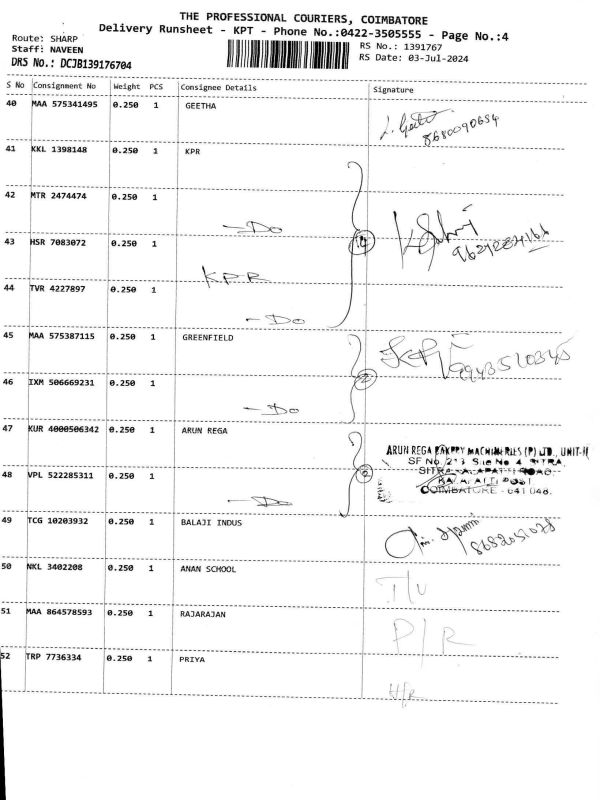 THE PROFESSIONAL COURIERS, COIMBATORE
Delivery Runsheet - KPT - Phone No.:0422-3505555 - Page No.:4
Route: SHARP
Staff: NAVEEN
DRS No.: DCJB139176704
RS No.: 1391767
RS Date: 03-Jul-2024
S No Consignment No Weight PCS Consignee Details Signature
40 MAA 575341495 0.250 1 GEETHA
8680090654
41 KKL 1398148 0.250 1 KPR
42 MTR 2474474 0.250 1
-Do
43 HSR 7083072 0.250 1
KPR
44 TVR 4227897 0.250 1
-Do
45 MAA 575387115 0.250 1 GREENFIELD
46 IXM 506669231 0.250 1
2
-Do
47 KUR 4000506342 0.250 1 ARUN REGA
ARUN REGA BAKERY MACHINERIES (P) LTD., UNIT-II
48 VPL 522285311 0.250 1
COIMBATORE - 641 048.
-Do
49 TCG 10203932 0.250 1 BALAJI INDUS
50 NKL 3402208 0.250 1 ANAN SCHOOL
51 MAA 864578593 0.250 1 RAJARAJAN
P/R
52 TRP 7736334 0.250 1 PRIYA